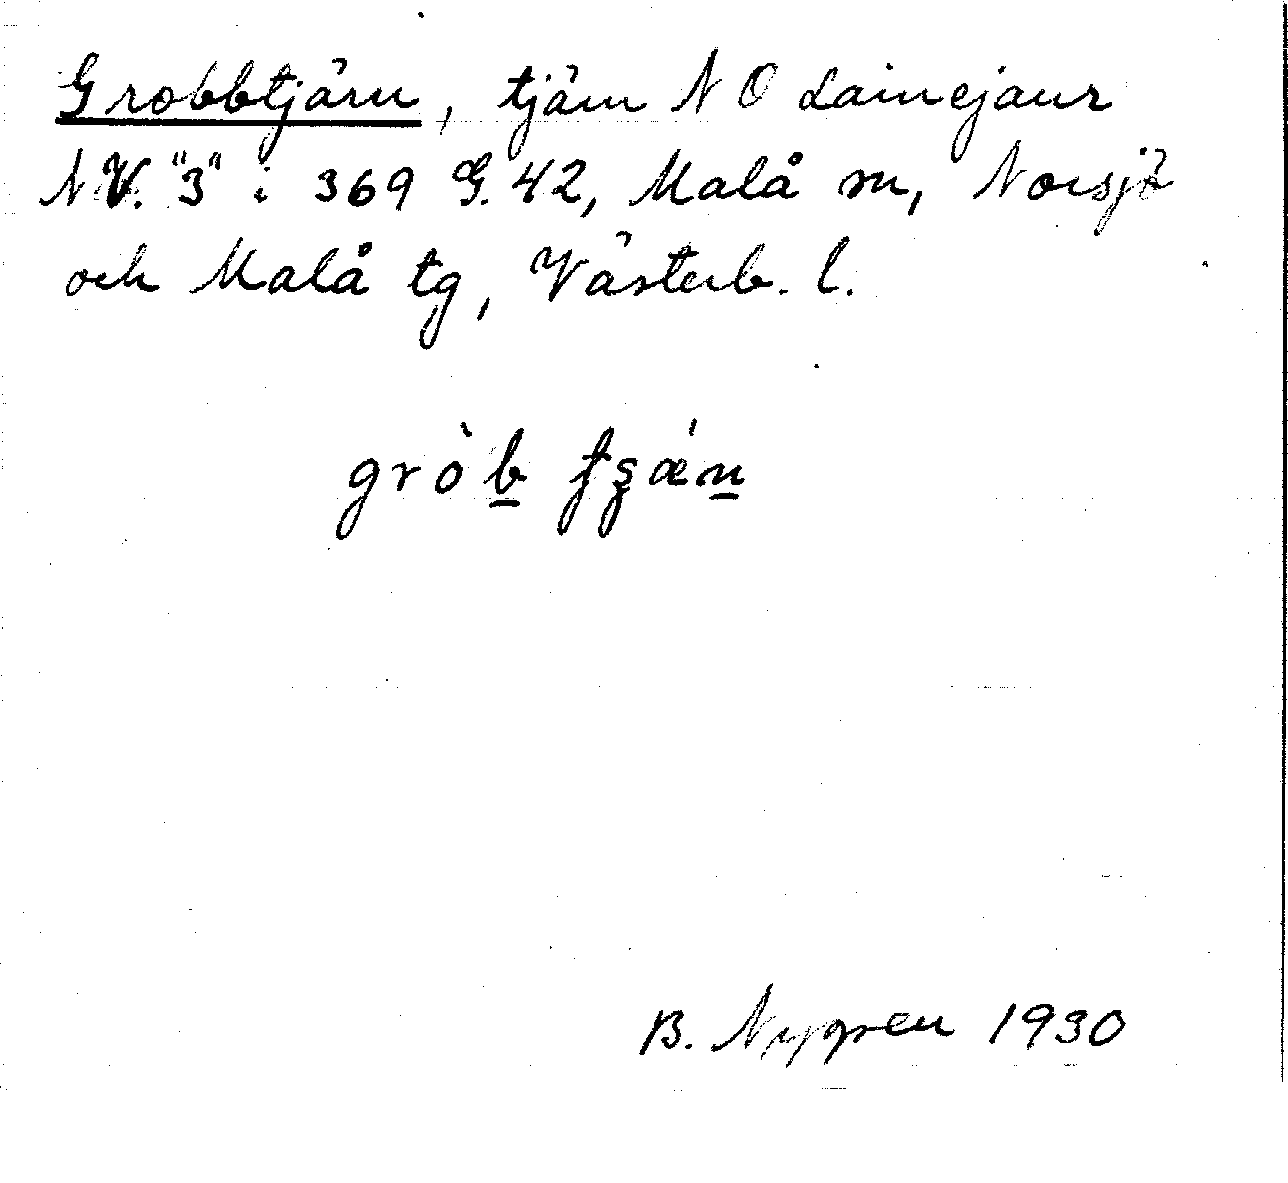 Grobbtjärn, tjärn N O Lainejaur
N.V. "3" i 369 G. 42, Malå sn, Norsjö
och Malå tg, Västerb. l.
gròb tʂǽn
B. Nygren 1930